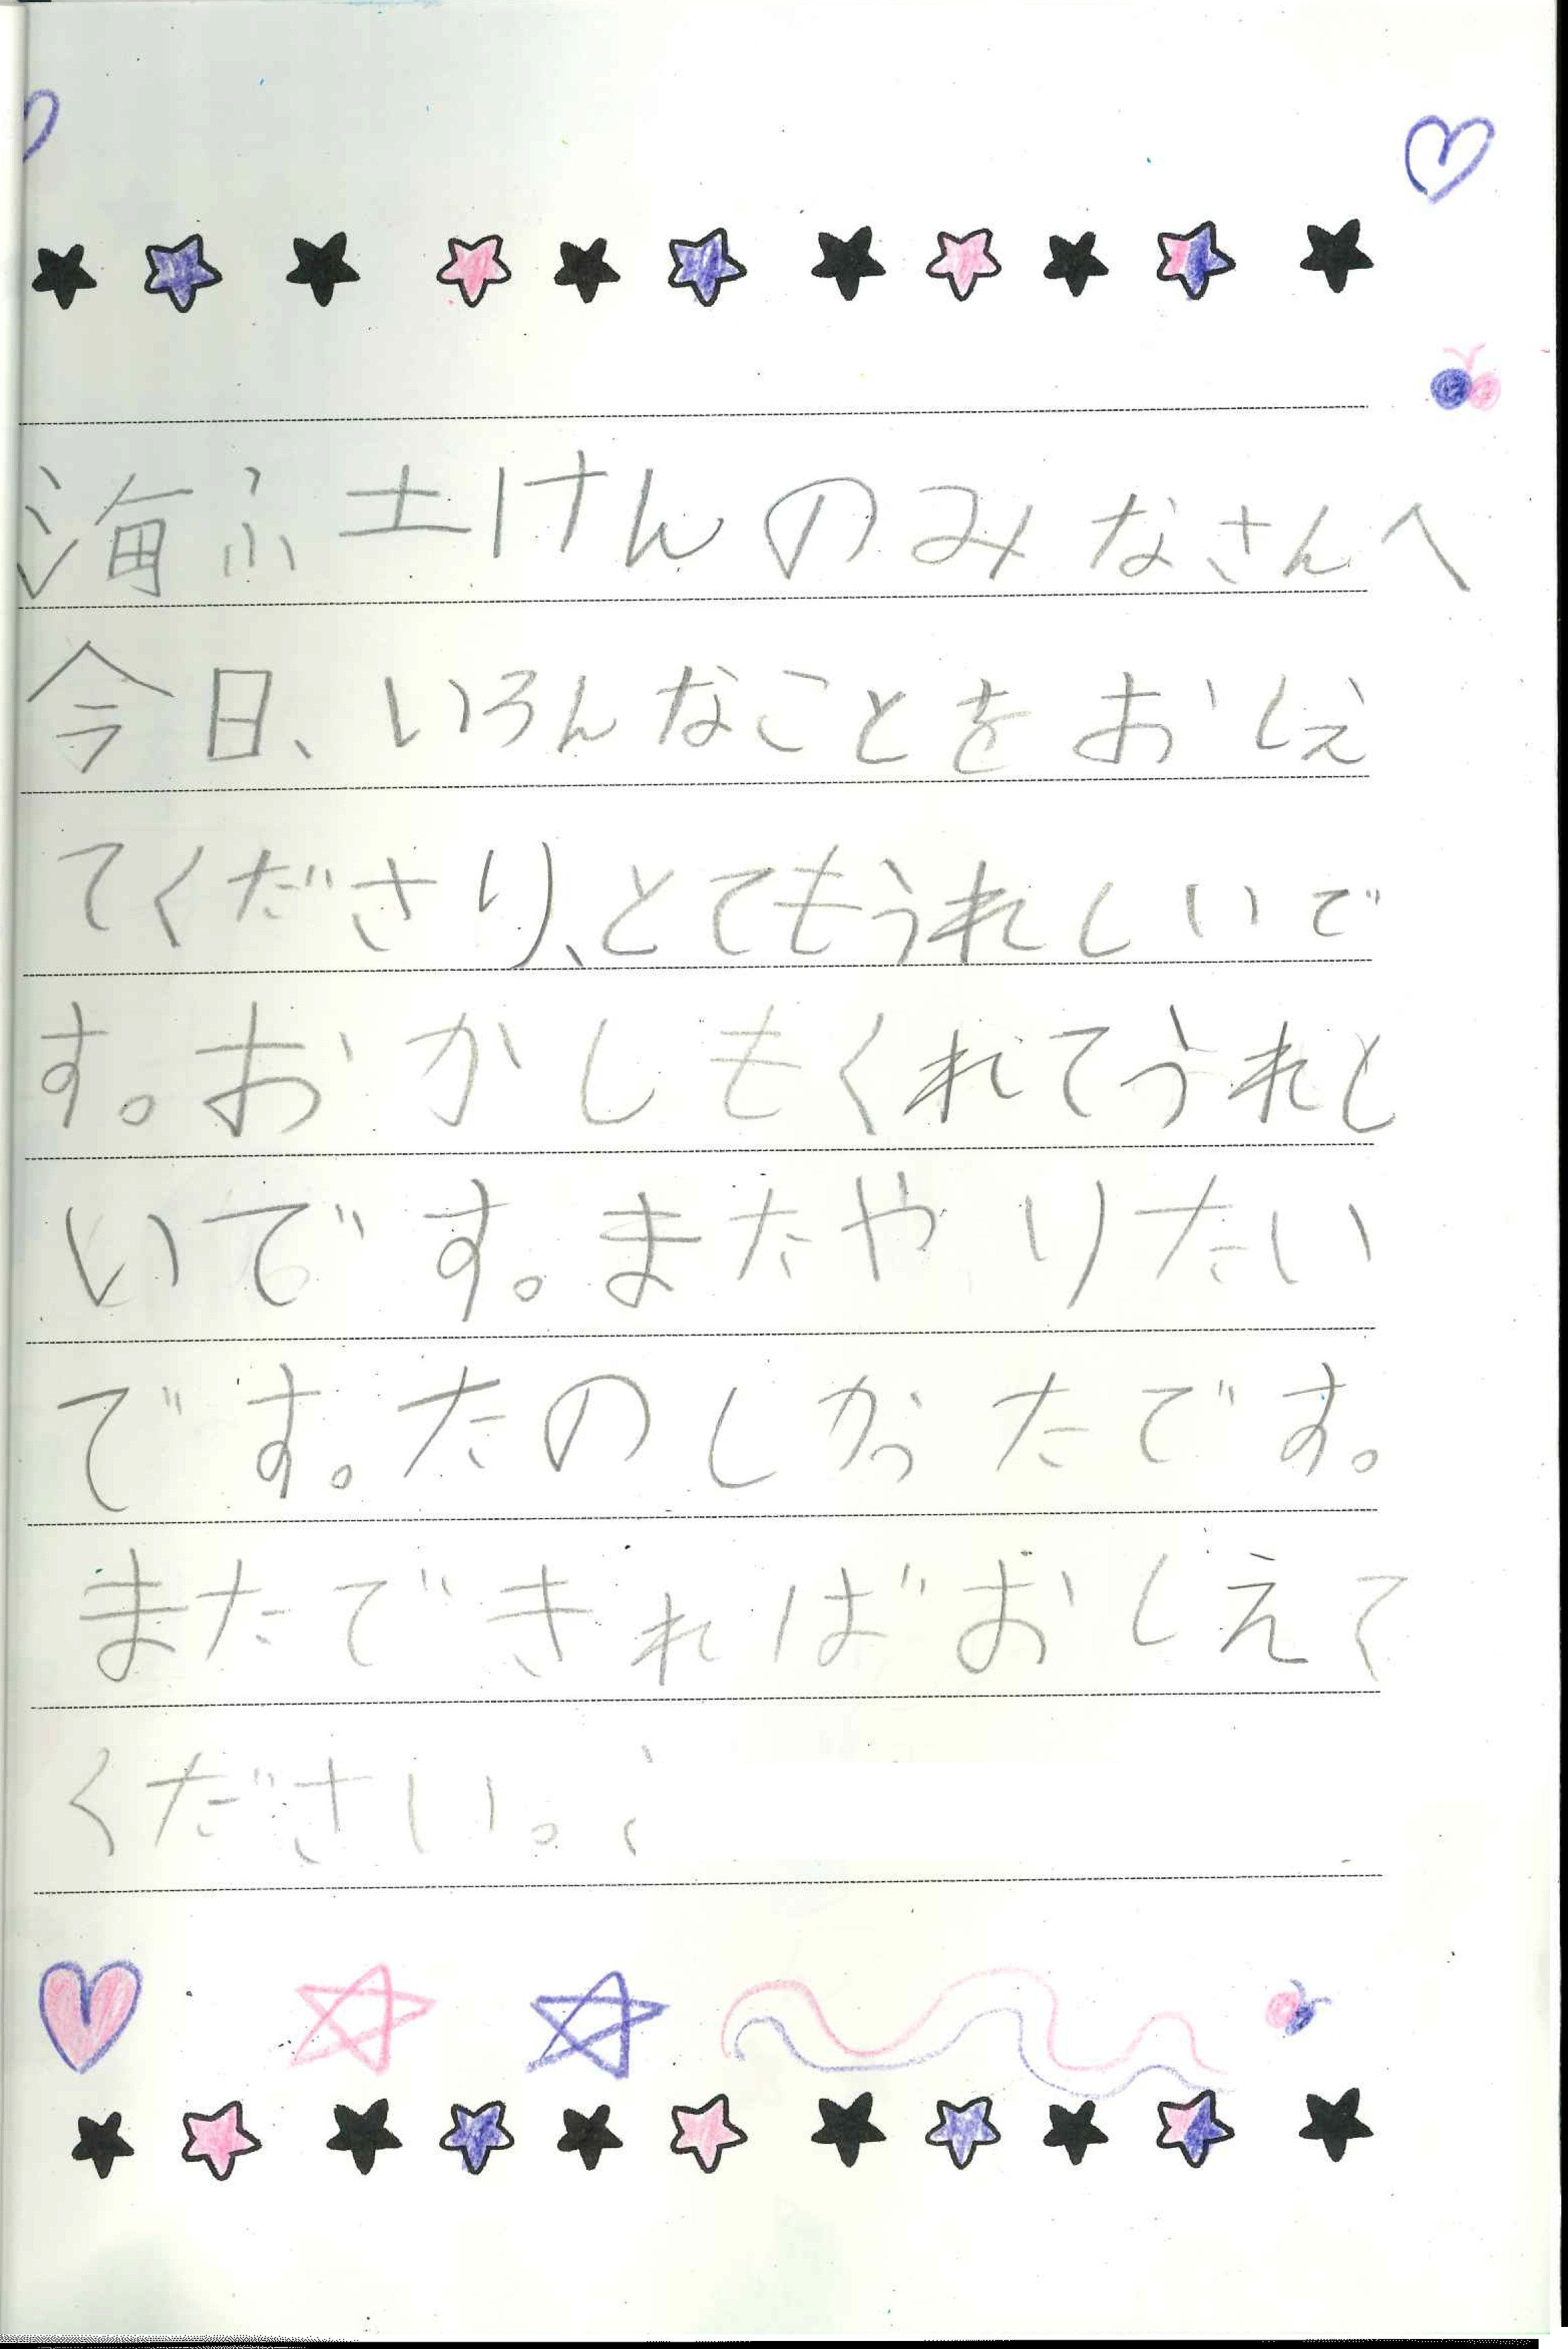 海ふ士けんのみなさんへ
今日、いろんなことをおしえ
てくださり、とてもうれしいで
す。おかしもくれてうれし
いです。またやりたい
です。たのしかったです。
またできればおしえて
ください。